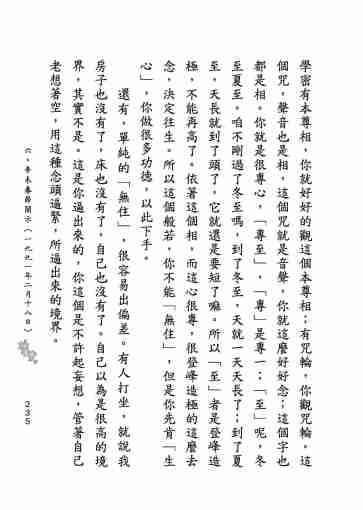 學密有本尊相，你就好好的觀這個本尊相；有咒輪，你觀咒輪。這
個咒，聲音也是相，這個咒就是音聲，你就這麼好好念；這個字也
都是相。你就是很專心，「專至」，「專」是專一；「至」呢，冬
至夏至。咱不剛過了冬至嗎，到了冬至，天就一天天長了；到了夏
至，天長就到了頭了，它就還是要短了嘛。所以「至」者是登峰造
極，不能再高了。依著這個相，而這心很專，很登峰造極的這麼去
念，決定往生。所以這個般若，你不能「無住」，但是你先肯「生
心」，你做很多功德，以此下手。
還有，單純的「無住」，很容易出偏差。有人打坐，就說我
房子也沒有了，床也沒有了，自己也沒有了。自己以為是很高的境
界，其實不是。這是你逼出來的，你這個是不許起妄想，管著自己
老想著空，用這種念頭逼緊，所逼出來的境界。
六、辛未春節開示（一九九一年二月十八日）
235